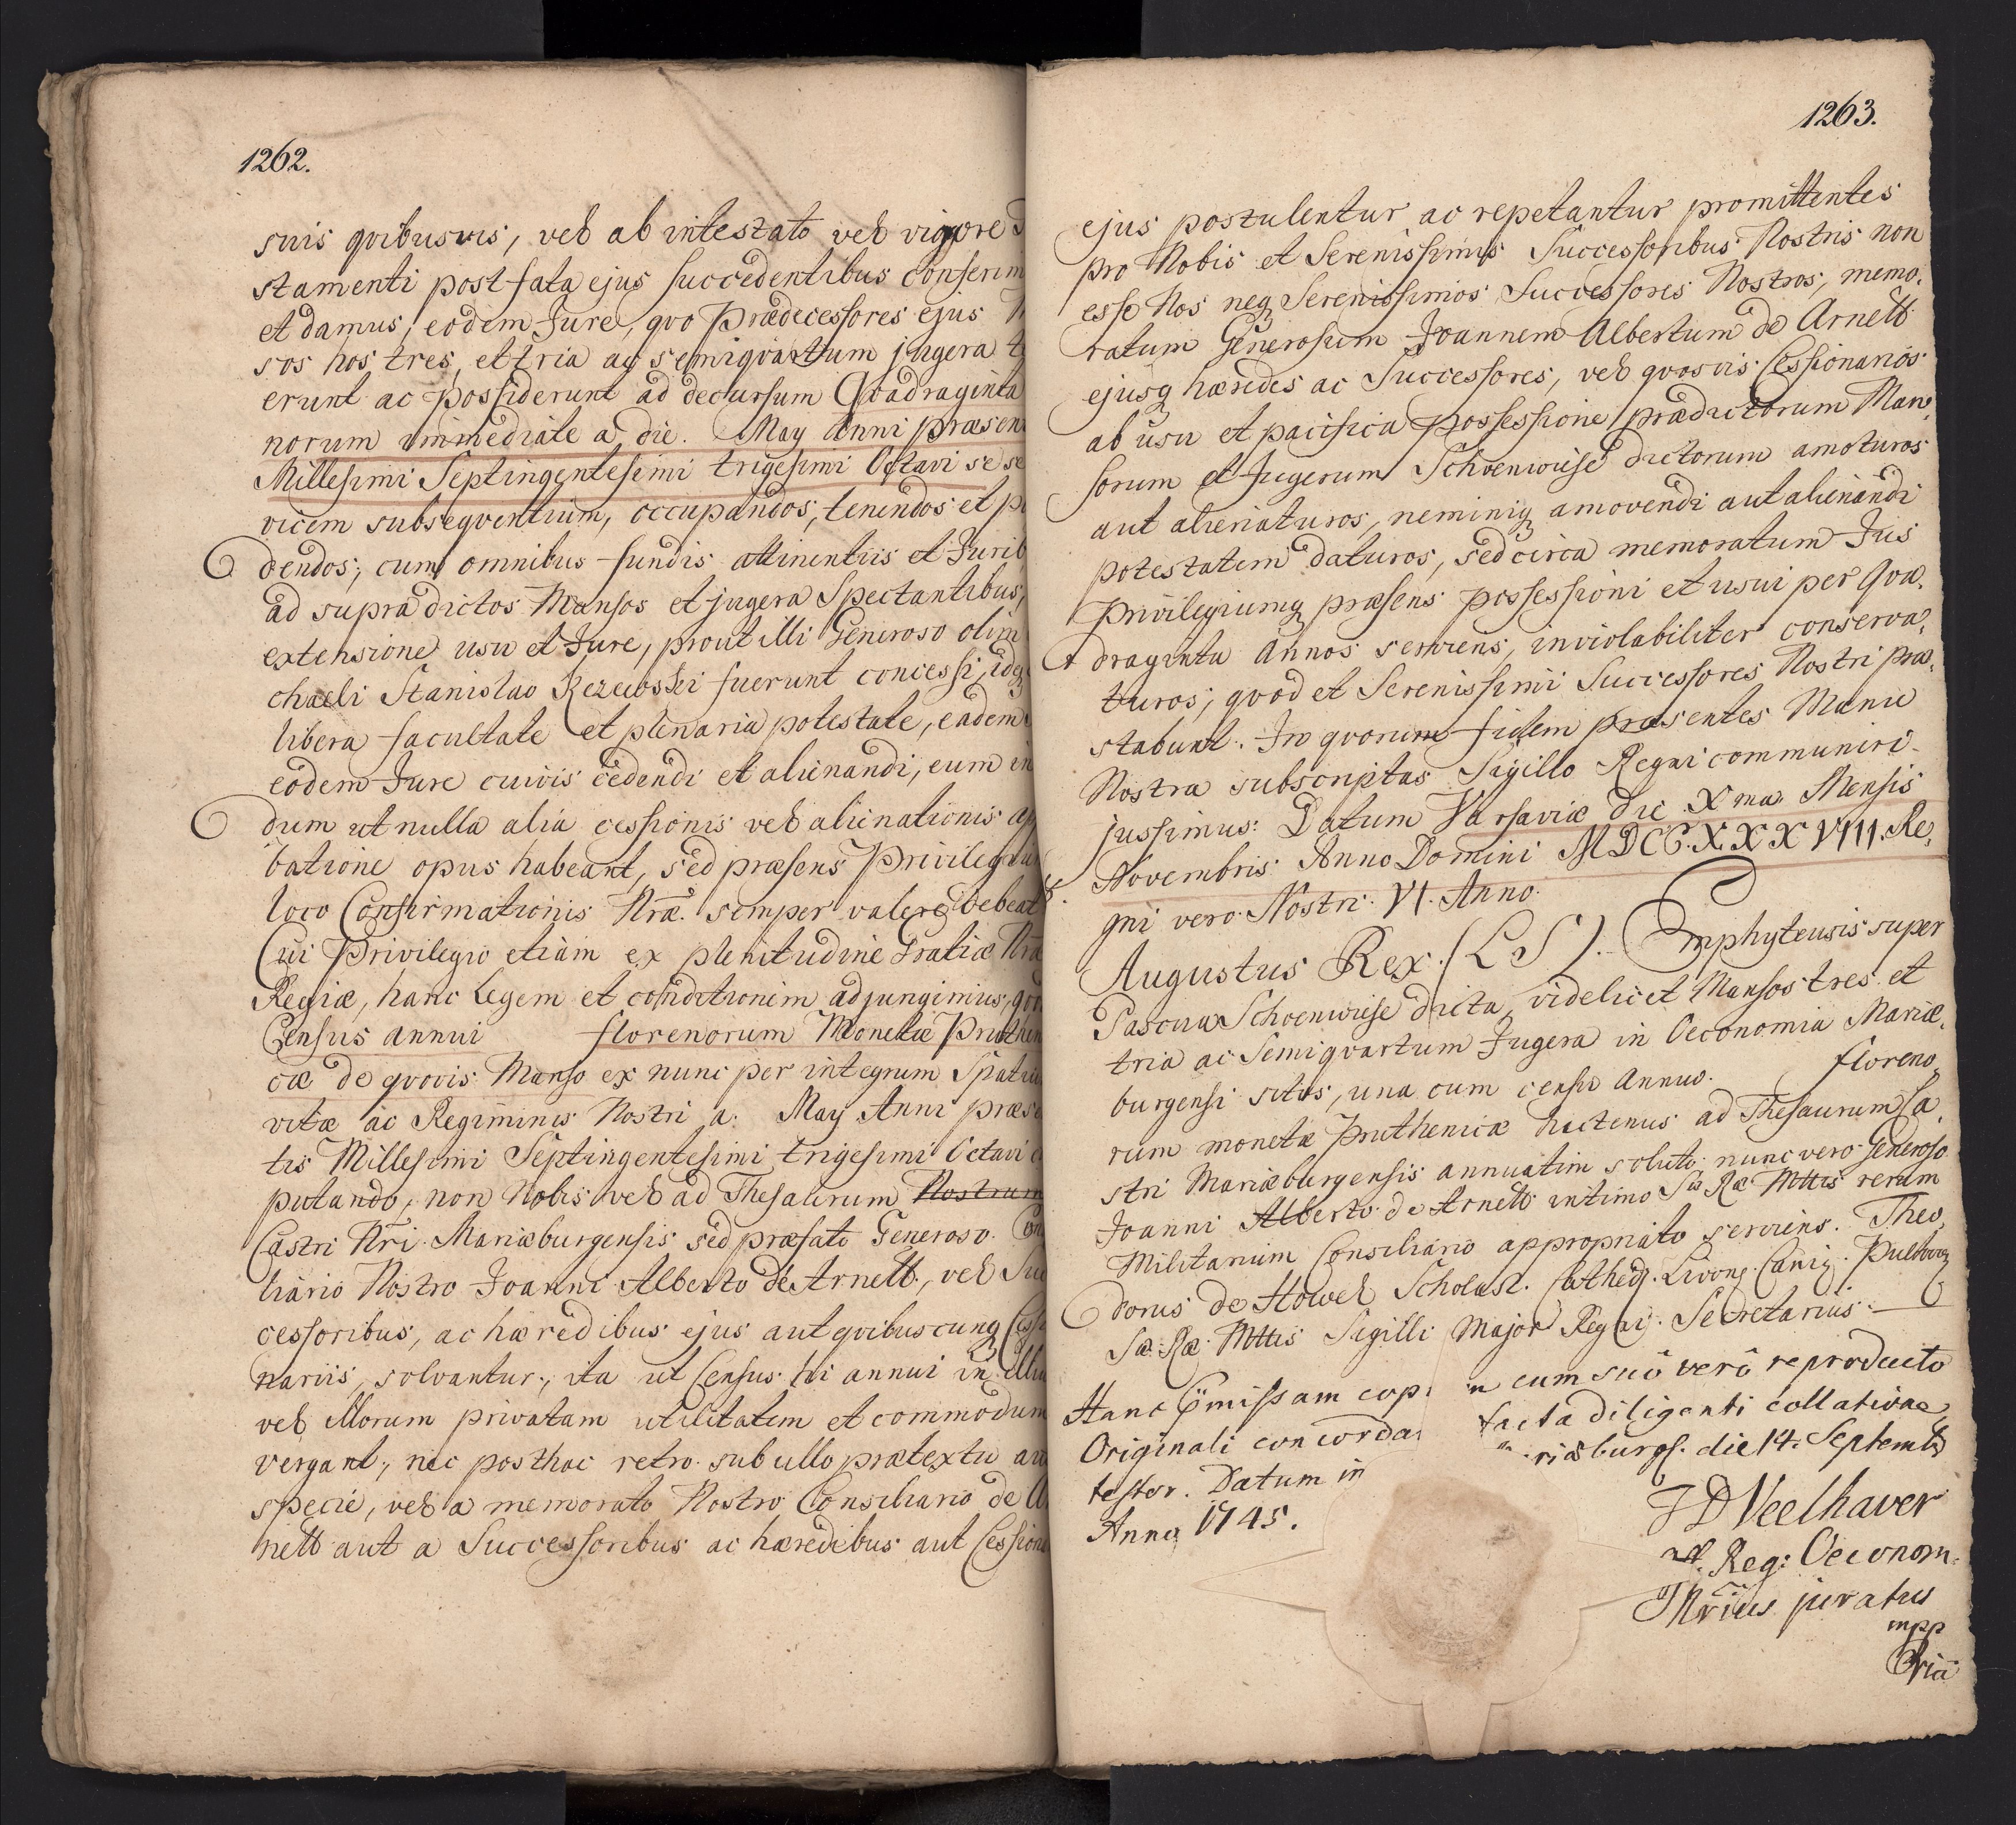 1262.
suis qvibusvis, vel ab intestato vel vigore
stamenti post fata ejus succedentibus conferim
et damus, eodem Jure, qvo Prædecessores ejus
sos hos tres, et tria ac semiqvartum jugera
erunt ac possiderunt ad decursum Qvadraginta
norum immediate a die. May Anni præsen
Millesimi Septingentesimi trigesimi Octavi se se
vicem subseqventium, occupandos, tenendos et p
dendos, cum omnibus fundis attinentiis et Jurib
ad supra dictos Mansos et jugera Spectantibus,
extensione usu et Jure, prout illi Generoso olim
chaeli Stanislao Rezewski fuerunt concessi, idq
libera facultate et plenaria potestate, eadem
eodem Jure cuivis cedendi et alienandi, eum in
dum ut nulla alia cessionis vel alienationis ap
batione opus habeant, sed præsens Privilegiu
loco Confirmationis Nræ. semper valere debeat
Cui Privilegio etiam ex plenitudine Gratiæ Nræ
Regiæ, hanc Legem et conditionem adjungimus, qvo
Census annui florenorum Monetæ Pruthen
cæ de qvovis Manso ex nunc per integrum Spatiu
vitæ ac Regiminis Nostri a. May Anni præse
tis Millesimi Septingentesimi trigesimi Octavi
putando, non Nobis vel ad Thesaurum Nostrum
Castri Nri. Mariæburgensis sed præfato Generoso Con
liario Nostro Joanni Alberto de Arnett, vel Suc
cessoribus, ac hæredibus ejus aut qvibuscunq Cessio
nariis, solvantur, ita ut Census hi annui in illiu
vel illorum privatam utilitatem et commodum
vergant, nec posthac retro sub ullo prætextu au
specie, vel a memorato Nostro Consiliario de Ar
nett aut a Successoribus ac hæredibus aut Cession
1263.
ejus postulentur ac repetantur promittentes
pro Nobis et Serenissimis Successoribus Nostris non
esse Nos neq Serenissimos Successores Nostros, memo,
ratum Generosum Joannem Albertum de Arnett
ejusq hæredes ac Successores, vel qvosvis Cessionarios
ab usu et pacifica possessione prædictorum Man,
sorum et Jugerum Schoenwiese dictorum amoturos
aut alienaturos, neminiq amovendi aut alienandi
potestatem daturos, sed circa memoratum Jus
Privilegiumq præsens possessioni et usui per Qva,
draginta Annos serviens, inviolabiliter conserva,
turos, qvod et Serenissimi Successores Nostri præ,
stabunt. In qvorum fidem præsentes Manu
Nostra subscriptas Sigillo Regni communiri
jussimus: Datum Varsaviæ die Xma. Mensis
Novembris Anno Domini MDCC.XXXVIII. Re,
gni vero Nostri VI. Anno.
Augustus Rex. (LS). Emphyteusis super
Pascua Schoenwiese dicta, videlicet Mansos tres et
tria ac Semiqvartum Jugera in Oeconomia Mariæ,
burgensi sitos, una cum censu Annuo. floreno,
rum monetæ Pruthenicæ hactenus ad Thesaurum Ca,
stri Mariæburgensis annuatim soluto, nunc vero Generoso
Joanni Alberto de Arnett intimo Sæ Ræ Mttis rerum
Militarium Consiliario appropriato serviens. Theo,
dorus de Howel Scholast. Cathedr. Livonq. Canig. Pultovq
Sæ. Ræ. Mttis Sigilli Major Regni. Secretarius.
Hanc præmissam cop n cum suô verô reproducto
Originali concorda facta diligenti collatione,
testor. Datum in riæburgs. die 14. Septembs
Anno 1745.
J D Veelhaver
Reg: Oeconom.
Nrius juratus
mpp